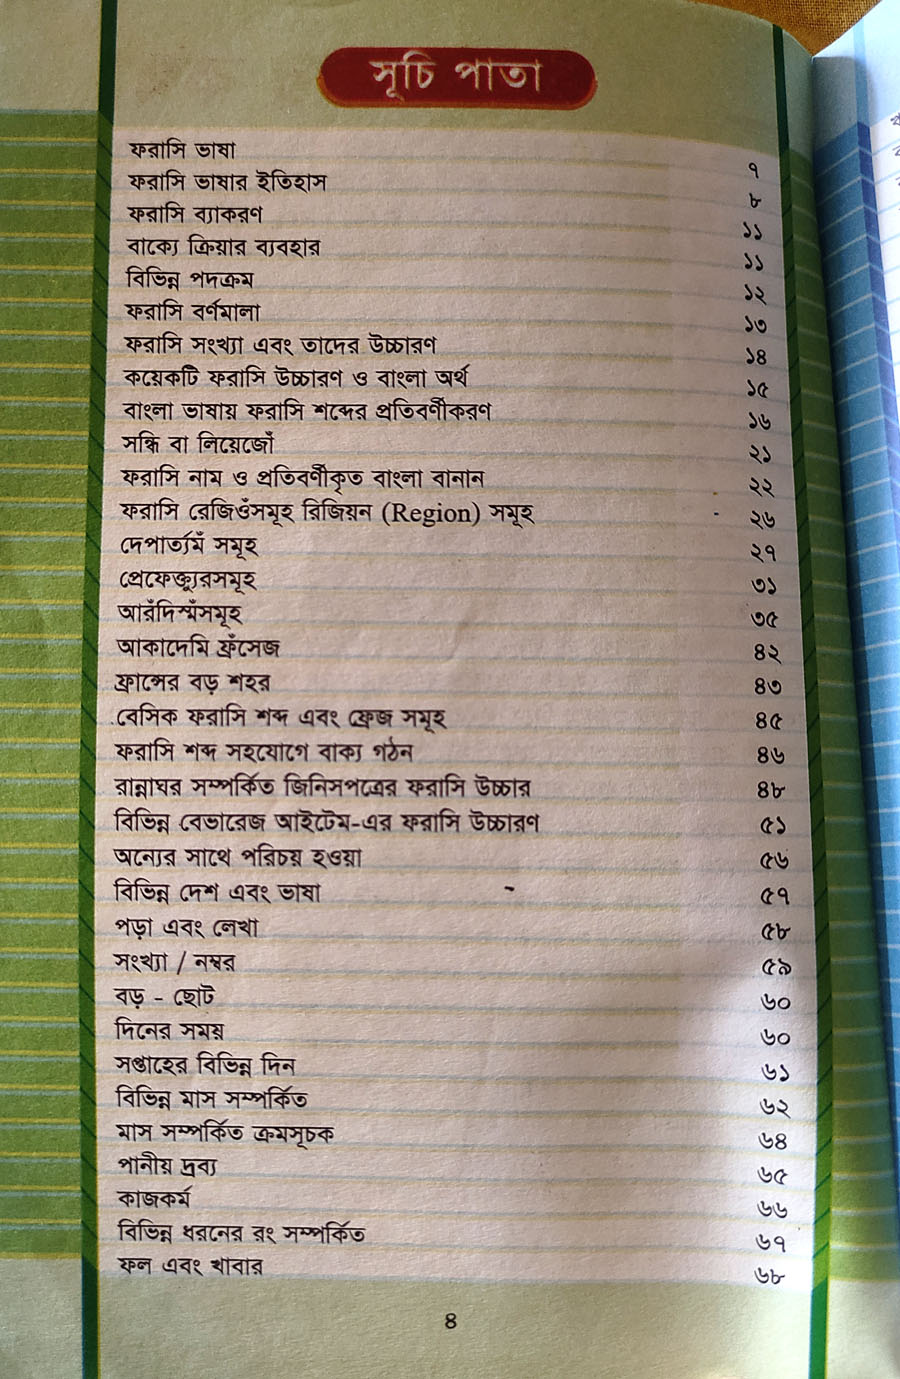 সূচি পাতা
ফরাসি ভাষা ৭
ফরাসি ভাষার ইতিহাস ৮
ফরাসি ব্যাকরণ ১১
বাক্যে ক্রিয়ার ব্যবহার ১১
বিভিন্ন পদক্রম ১২
ফরাসি বর্ণমালা ১৩
ফরাসি সংখ্যা এবং তাদের উচ্চারণ ১৪
কয়েকটি ফরাসি উচ্চারণ ও বাংলা অর্থ ১৫
বাংলা ভাষায় ফরাসি শব্দের প্রতিবর্ণীকরণ ১৬
সন্ধি বা লিয়েজোঁ ২১
ফরাসি নাম ও প্রতিবর্ণীকৃত বাংলা বানান ২২
ফরাসি রেজিওঁসমূহ রিজিয়ন (Region) সমূহ ২৬
দেপার্ত্যমঁ সমূহ ২৭
প্রেফেক্ত্যুরসমূহ ৩১
আরঁদিস্মঁসমূহ ৩৫
আকাদেমি ফ্রঁসেজ ৪২
ফ্রান্সের বড় শহর ৪৩
বেসিক ফরাসি শব্দ এবং ফ্রেজ সমূহ ৪৫
ফরাসি শব্দ সহযোগে বাক্য গঠন ৪৬
রান্নাঘর সম্পর্কিত জিনিসপত্রের ফরাসি উচ্চার ৪৮
বিভিন্ন বেভারেজ আইটেম-এর ফরাসি উচ্চারণ ৫১
অন্যের সাথে পরিচয় হওয়া ৫৬
বিভিন্ন দেশ এবং ভাষা ৫৭
পড়া এবং লেখা ৫৮
সংখ্যা / নম্বর ৫৯
বড় - ছোট ৬০
দিনের সময় ৬০
সপ্তাহের বিভিন্ন দিন ৬১
বিভিন্ন মাস সম্পর্কিত ৬২
মাস সম্পর্কিত ক্রমসূচক ৬৪
পানীয় দ্রব্য ৬৫
কাজকর্ম ৬৬
বিভিন্ন ধরনের রং সম্পর্কিত ৬৭
ফল এবং খাবার ৬৮
৪